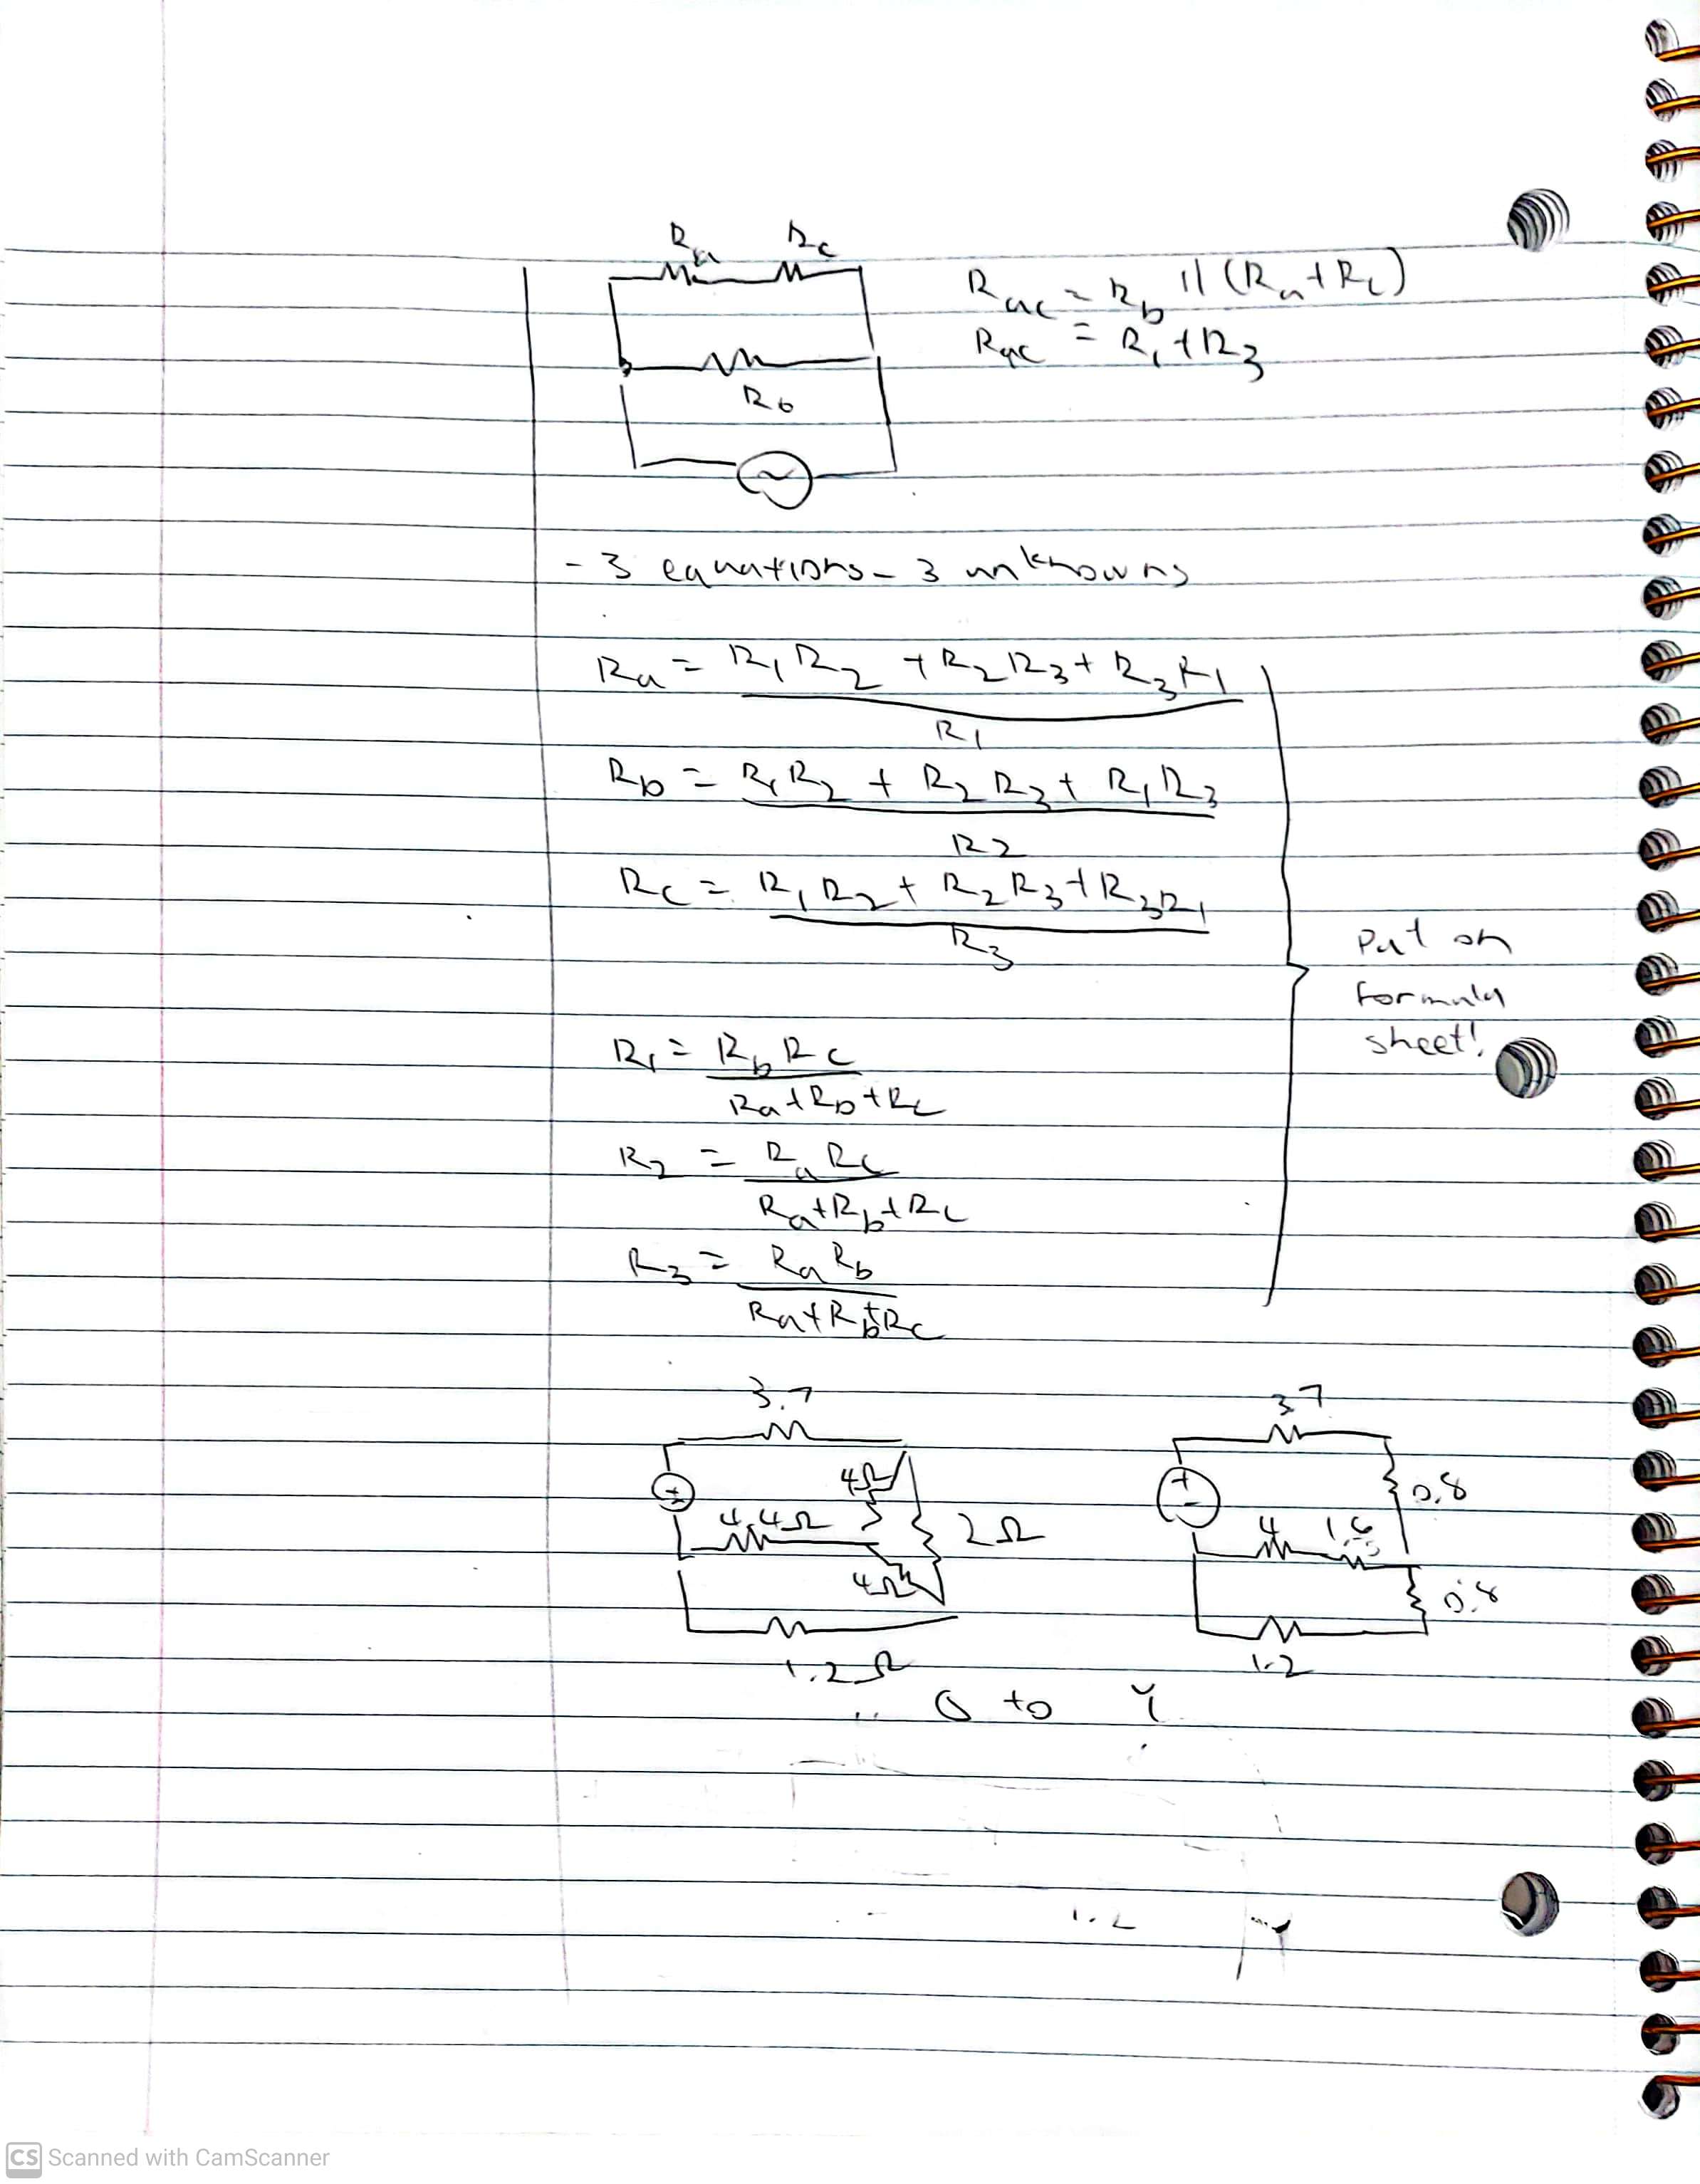 Ra Rc
Rac = Rb || (Ra + Rc)
Rac = R1 + R3
Rb
~
- 3 equations - 3 unknowns
Ra = R1 R2 + R2 R3 + R3 R1
R1
Rb = R1 R2 + R2 R3 + R1 R3
R2
Rc = R1 R2 + R2 R3 + R3 R1
R3
Put on
formula
sheet!
R1 = Rb Rc
Ra + Rb + Rc
R2 = Ra Rc
Ra + Rb + Rc
R3 = Ra Rb
Ra + Rb + Rc
3.7
4Ω
+
-
4.4Ω
2Ω
4Ω
1.2Ω
3.7
+
-
0.8
4 1.6
0.8
1.2
Δ to Y
CS Scanned with CamScanner